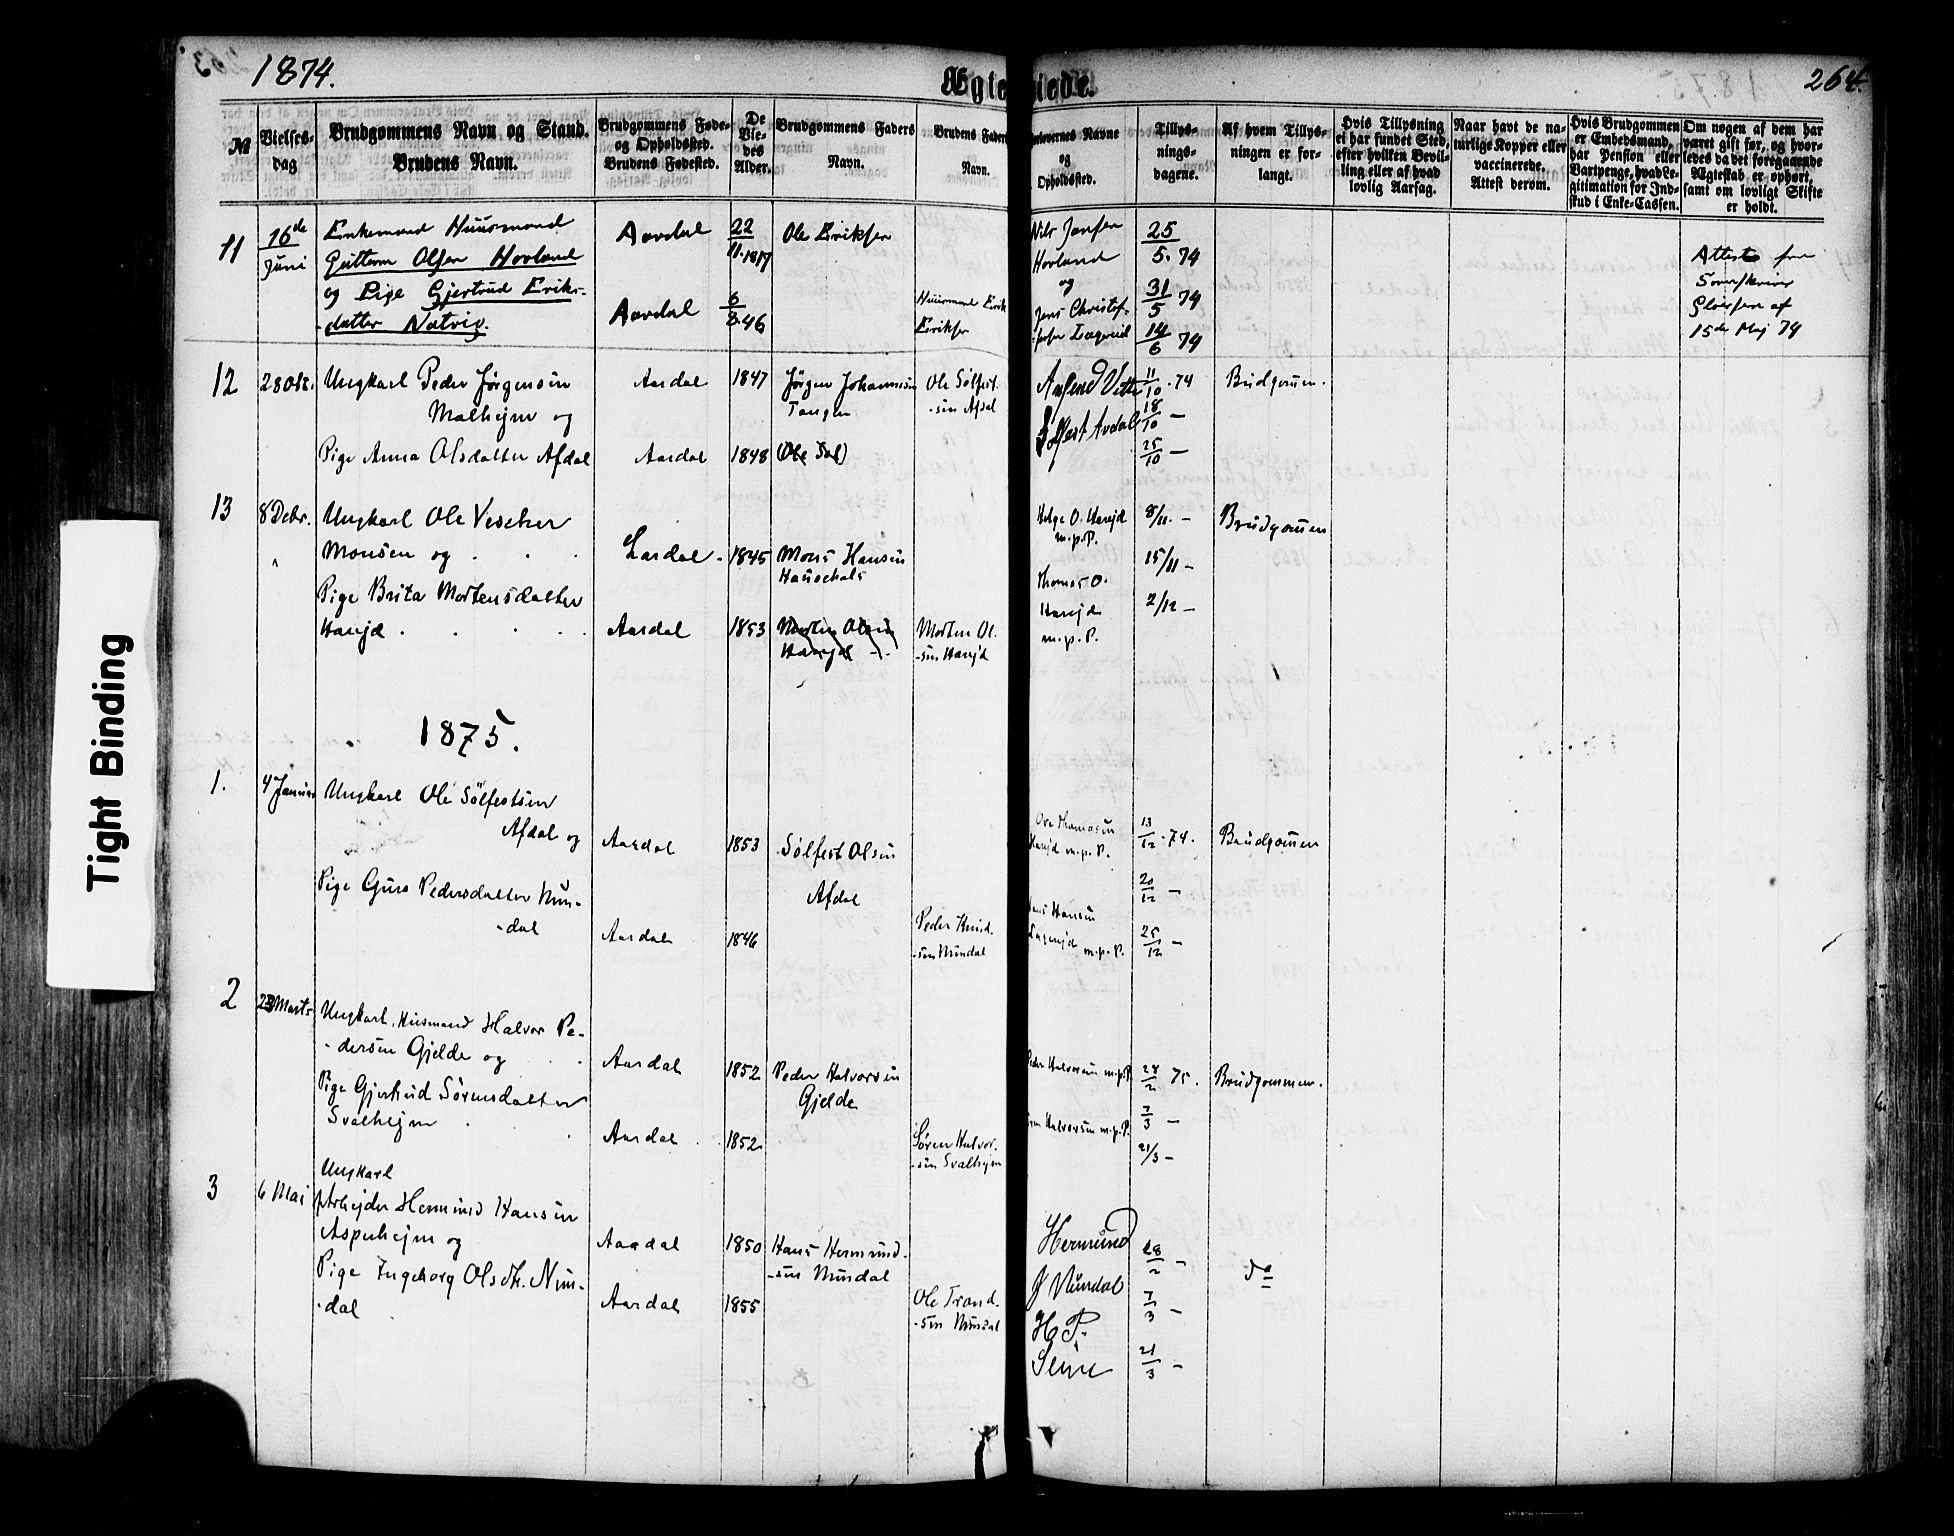 1874.
Ægteviede.
264.
№
Vielses-
dag
Brudgommens Navn og Stand.
Brudens Navn.
Brudgommens Føde-
og Opholdssted.
Brudens Fødested.
De
Vie-
des
Alder.
Brudgommens Faders
Navn.
Brudens Faders
Navn.
Forlovernes Navne
og
Opholdssted.
Tillys-
nings-
dagene.
Af hvem Tillys-
ningen er for-
langt.
Hvis Tillysning
ei har fundet Sted,
efter hvilken Bevil-
ling eller af hvad
lovlig Aarsag.
Naar havt de na-
turlige Kopper eller
vaccinerede.
Attest derom.
Hvis Brudgommen
er Embedsmand,
har Pension eller
Vartpenge, hvad Le-
gitimation for Ind-
skud i Enke-Cassen.
Om nogen af dem har
været gift før, og hvor-
ledes da det foregaaende
Ægteskab er ophørt,
samt om lovligt Skifte
er holdt.
11
16de
Juni
Enkemand Huusmand
Guttorm Olsen Hovland
og Pige Gjertrud Eriks-
-datter Natvig.
Aardal
Aardal
22
11.1817
6
8.46
Ole Eriksen
Huusmand Erik
Eriksen
Nils Jansen
Hovland
og
Jens Christof-
25
5.74
31
5 74
14
6 74
Attest fra
Sorenskriver
15de Maj 74
12
28 Okt.
Ungkarl Peder Jørgensen
Malhejm og
Pige Anna Olsdatter Afdal
Aardal
Aardal
1847
1848
Jørgen Johannesen
Tangen
Ole Sølfest-
-sen Afdal
Sølfest Avdal
11
10 .74
18
10 —
25
10 —
Brudgommen.
13
8 Decbr.
Ungkarl Ole Vescher
Monsen og
Pige Brita Mortensdatter
Harejd
Lardal
Aardal
1845
1853
Mons Hansen
Morten Olsen
Harejd
Morten Ol-
-sen Harejd
Helge O. Harejd
m.p.P.
Thomas O.
Harejd
m.p.P.
8/11. —
15/11 —
2/12 —
Brudgommen
1875.
1.
4 Januar
Ungkarl Ole Sølfestsen
Afdal og
Pige Guro Pedersdatter Nun-
-dal
Aardal
Aardal
1853
1846
Sølfest Olsen
Afdal
Peder Knud-
-sen Nundal
Ove Thomasen
Harejd m.p.P.
Hans Hansen
m.p.P.
13
12 .74.
20
12 —
25
12 —
Brudgommen
2
23 Marts
Ungkarl, Husmand Halvor Pe-
-dersen Gjelde og
Pige Gjertrud Sørensdatter
Svalhejm
Aardal
Aardal
1852
1852
Peder Halvorsen
Gjelde
Søren Halvor-
-sen Svalhejm
Peder Halvorsen m.p.P.
Halvorsen m.p.P.
28
2 75.
7
3 —
21/3 —
Brudgommen.
3
6 Mai
Ungkarl
Arbejder Hermund Hansen
Asperhejm og
Pige Ingeborg Olsdtr. Nun-
-dal
Aardal
Aardal
1850
1855
Hans Hermund-
-sen Nundal
Ole Trond-
-sen Nundal
Hermund
J Nundal
H. P.
28
2 —
7
3 —
21
3 —
do
Tight Binding